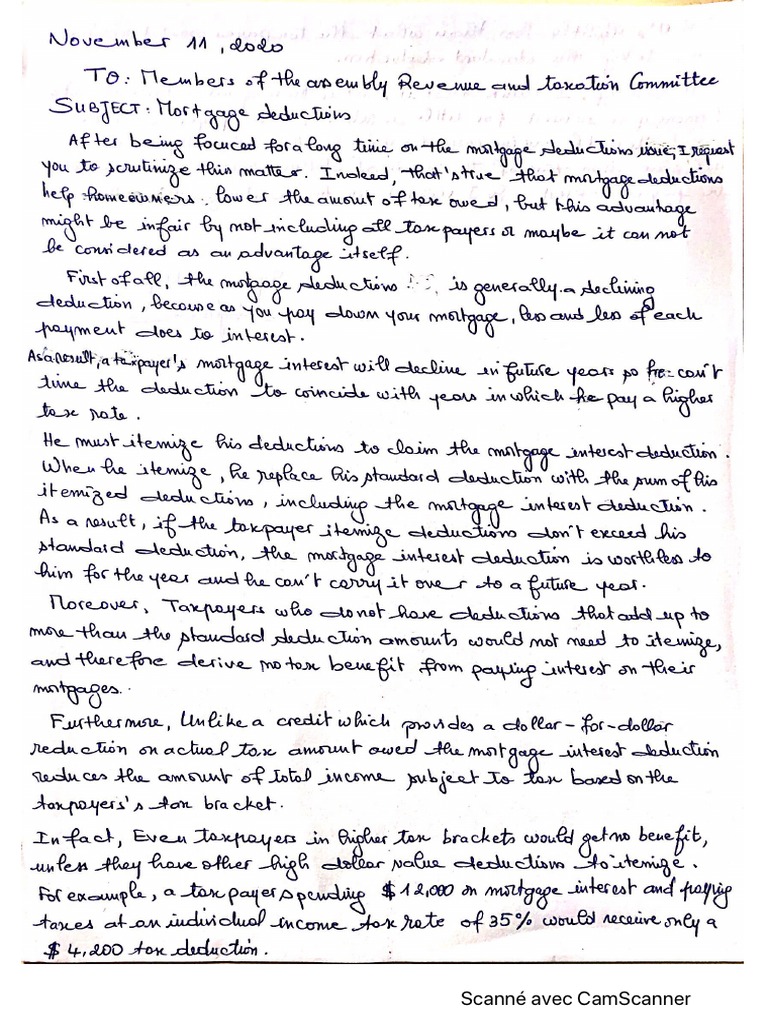 November 11, 2020
TO: Members of the assembly Revenue and taxation Committee
SUBJECT: Mortgage deductions
After being focused for a long time on the mortgage deductions issue, I request
you to scrutinize this matter. Indeed, that's true that mortgage deductions
help homeowners lower the amount of tax owed, but this advantage
might be infair by not including all taxpayers or maybe it can not
be considered as an advantage itself.
First of all, the mortgage deductions is generally a declining
deduction, because as you pay down your mortgage, less and less of each
payment does to interest.
As a result, a taxpayer's mortgage interest will decline in future years so he can't
time the deduction to coincide with years in which he pay a higher
tax rate.
He must itemize his deductions to claim the mortgage interest deduction.
When he itemize, he replace his standard deduction with the sum of his
itemized deductions, including the mortgage interest deduction.
As a result, if the taxpayer itemize deductions don't exceed his
standard deduction, the mortgage interest deduction is worthless to
him for the year and he can't carry it over to a future year.
Moreover, Taxpayers who do not have deductions that add up to
more than the standard deduction amounts would not need to itemize,
and therefore derive no tax benefit from paying interest on their
mortgages.
Furthermore, Unlike a credit which provides a dollar-for-dollar
reduction on actual tax amount owed the mortgage interest deduction
reduces the amount of total income subject to tax based on the
taxpayers's tax bracket.
In fact, Even taxpayers in higher tax brackets would get no benefit,
unless they have other high dollar value deductions to itemize.
For example, a taxpayer spending $12,000 on mortgage interest and paying
taxes at an individual income tax rate of 35% would receive only a
$4,200 tax deduction.
Scanné avec CamScanner